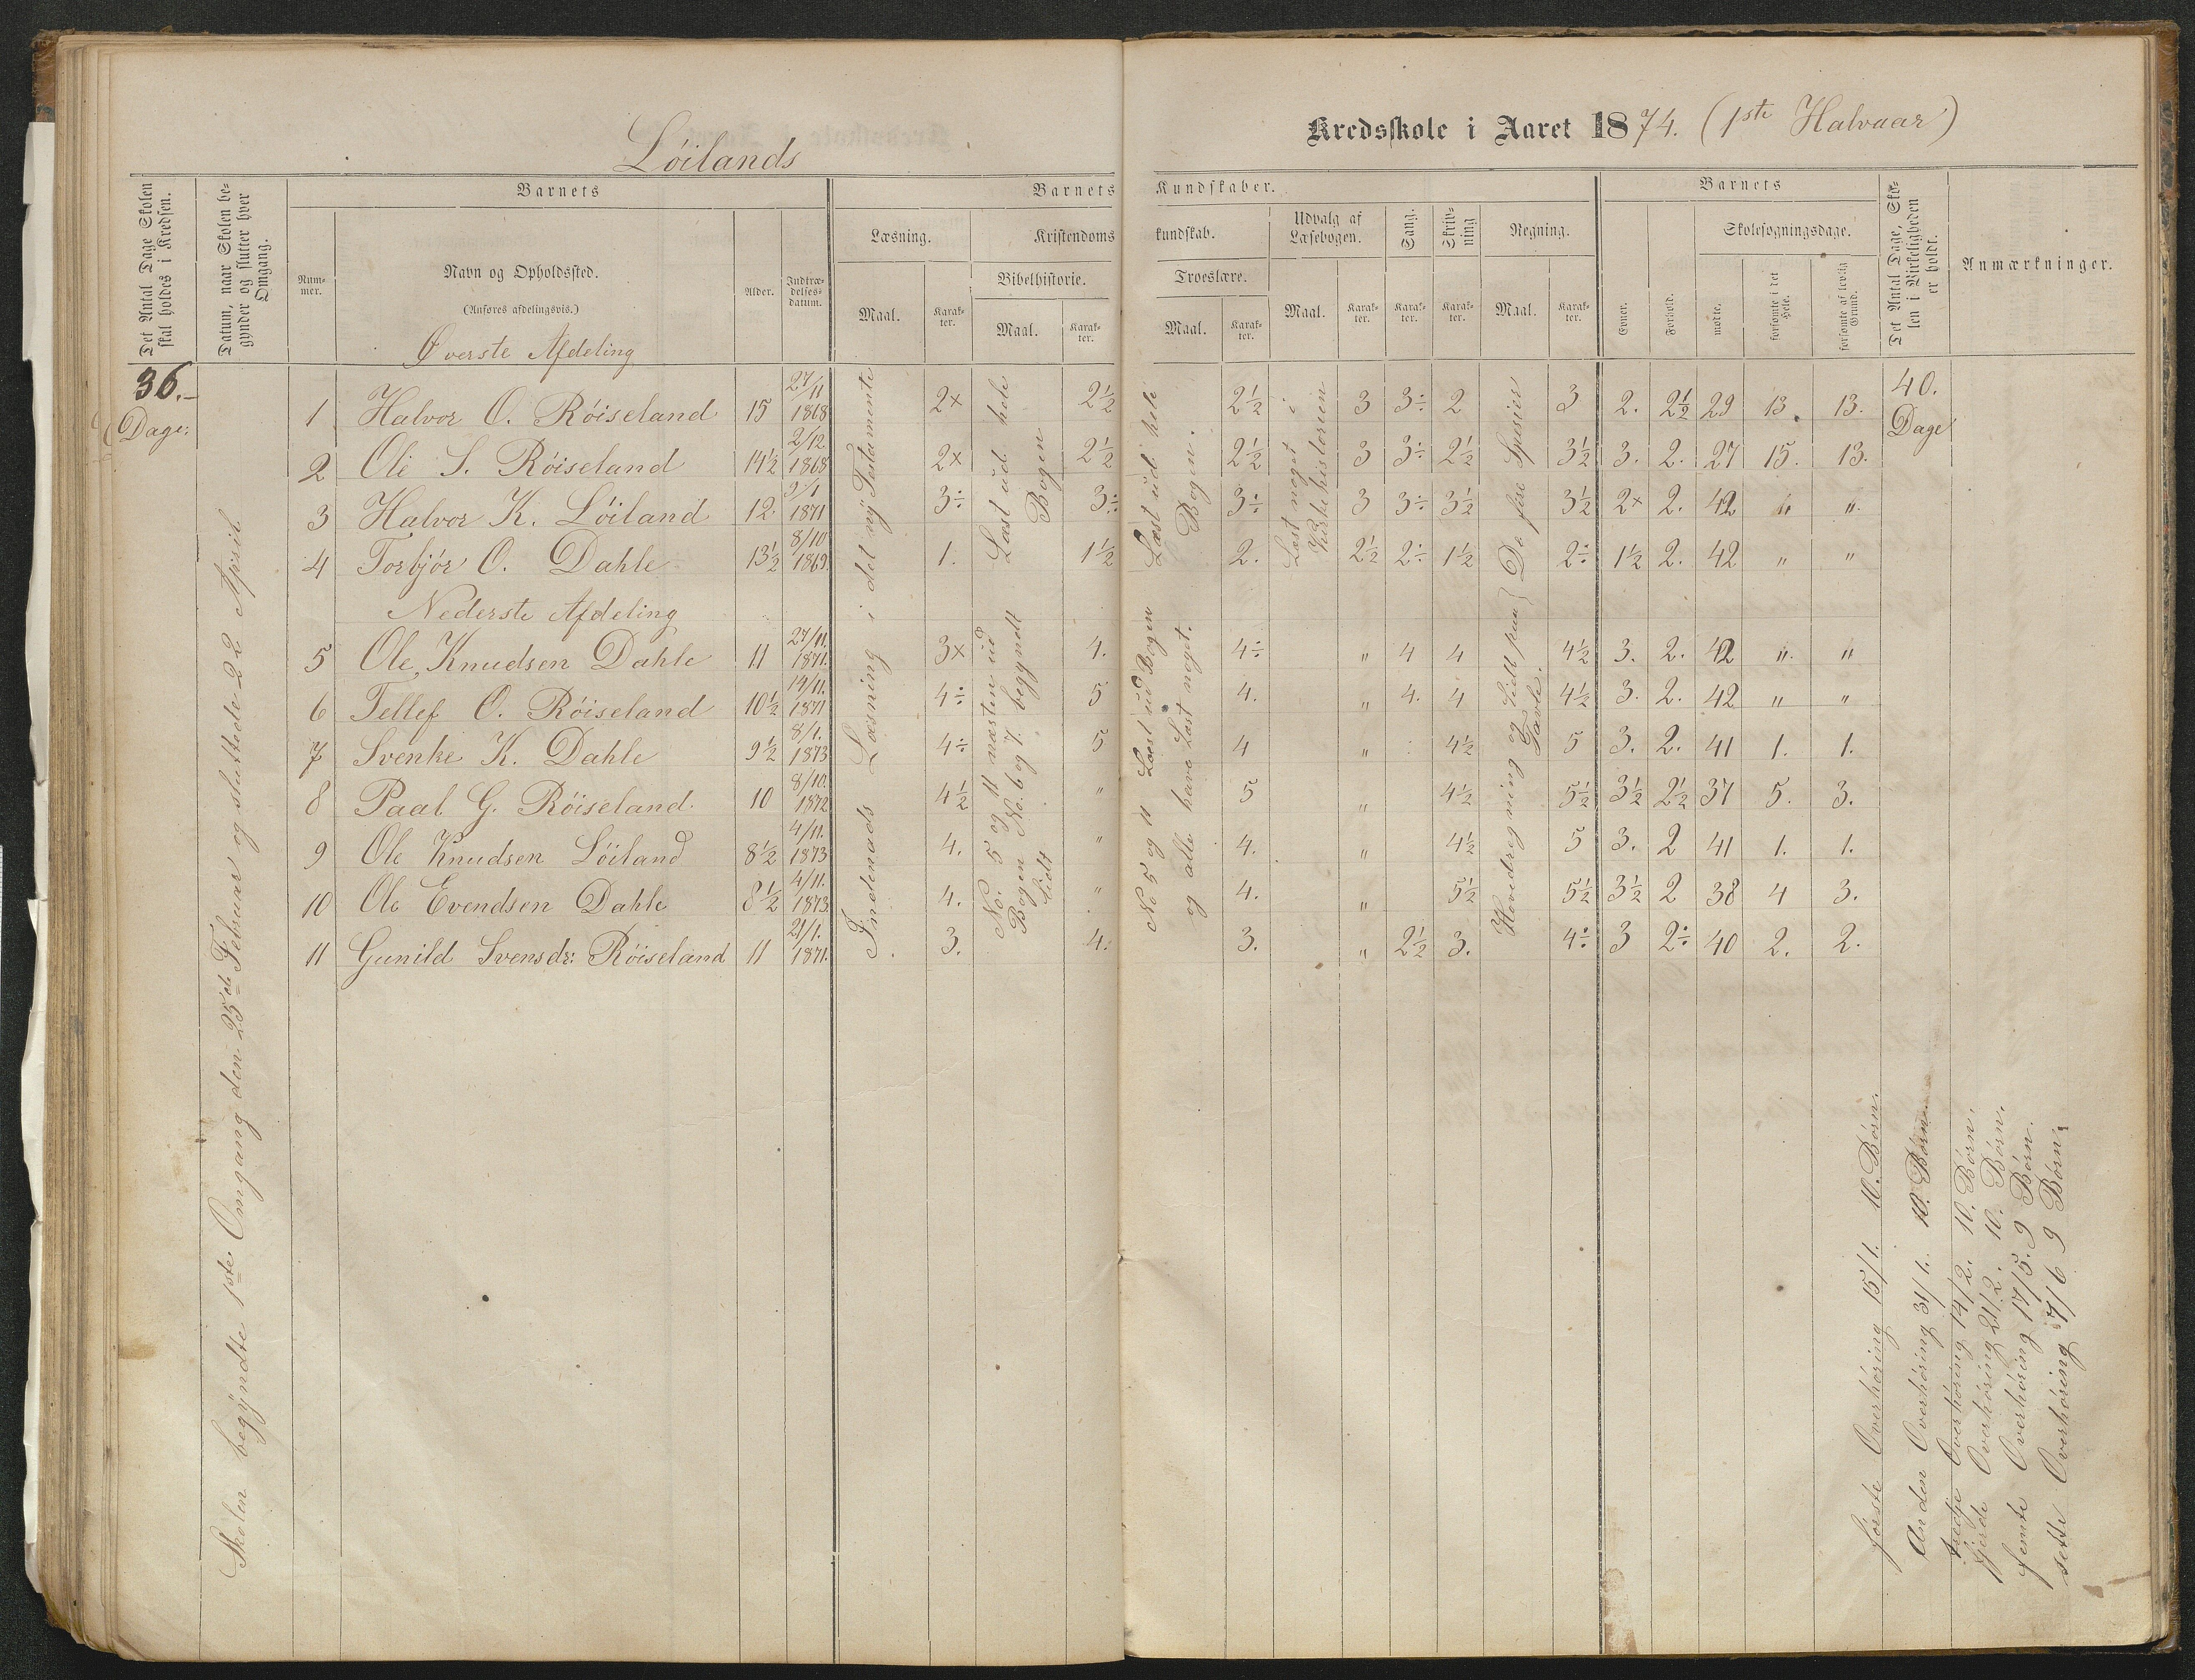 Löilands
Kredsskole i Aaret 1874. (1ste Halvaar)
Det Antal Dage Skolen skal holdes i Kredsen.
Datum, naar Skolen begynder og slutter hver Omgang.
Barnets
Barnets Kundskaber.
Barnets
Det Antal Dage, Skolen i Virkeligheden er holdt.
Anmærkninger.
Nummer.
Navn og Opholdssted.
(Anføres afdelingsvis.)
Alder.
Indtrædelsesdatum.
Læsning.
Kristendomskundskab.
Udvalg af Læsebogen.
Sang.
Skrivning
Regning.
Evner.
Forhold.
Skolesøgningsdage.
Bibelhistorie.
Troeslære.
Maal. Karakter. Maal. Karakter. Maal. Karakter. Maal. Karakter. Karakter. Karakter. Maal. Karakter.
mødte. forsømte i det Hele. forsømte af lovlig Grund.
Øverste Afdeling
36. Dage:
40. Dage
1 Halvor O. Röiseland 15 27/11 1868 2x 2½ 2½ 3 3÷ 2 3 2. 2½ 29 13. 13.
2 Ole S. Röiseland 14½ 2/12 1868 2x 2½ 2½ 3 3÷ 2½ 3½ 3. 2. 27 15. 13.
3 Halvor K. Löiland 12. 1871 3÷ 3÷ 3÷ 3 3÷ 3½ 3½ 2x 2. 42 " "
4 Torbjör O. Dahle 13½ 8/10 1869. 1. 1½ 2. 2½ 2÷ 1½ 2÷ 1½ 2. 42 " "
Nederste Afdeling
5 Ole Knudsen Dahle 11 27/11. 1871. 3x 4. 4÷ " 4 4 4½ 3. 2. 42 " "
6 Tellef O. Röiseland 10½ 14/11. 1871 4÷ 5 4. " 4. 4 4½ 3. 2. 42 " "
7 Svenke K. Dahle 9½ 8/1. 1873 4÷ 5 4 " 4½ 5 3. 2. 41 1. 1.
8 Paal G. Röiseland. 10 8/10. 1872 4½ " 5 " 4½ 5½ 3½ 2½ 37 5. 3.
9 Ole Knudsen Löiland 8½ 4/11. 1873 4. " 4. " 4½ 5 3. 2 41 1. 1.
10 Ole Evendsen Dahle 8½ 4/11. 1873. 4. " 4. " 5½ 5½ 3½ 2 38 4 3.
11 Gunild Svensdr: Röiseland 11 21/1. 1871. 3. 4. 3. " 2½ 3. 4÷ 3 2÷ 40 2. 2.
Skolen begyndte 1ste Omgang den 25de Februar og sluttede 22 April
Indenads Læsning i det ny Testamente
Læst ud hele Bogen
No. 5 og 11 næsten ud Bogen No. 6 og 7. begyndt lidt
Læst ud hele Bogen.
No 5 og 11 Læst ud Bogen og alle have Læst noget.
Læst noget i Kirkehistorien
De fire Spesier
Hovedregning og lidt paa Tavle.
förste Overhöring 15/1. 10. Börn.
Anden Overhöring 31/1. 10. Börn.
tredje Overhöring 14/2. 10. Börn.
fjerde Overhöring 21/2. 10. Börn.
femte Overhöring 17/5. 9 Börn.
sette Overhöring 7/6 9 Börn.